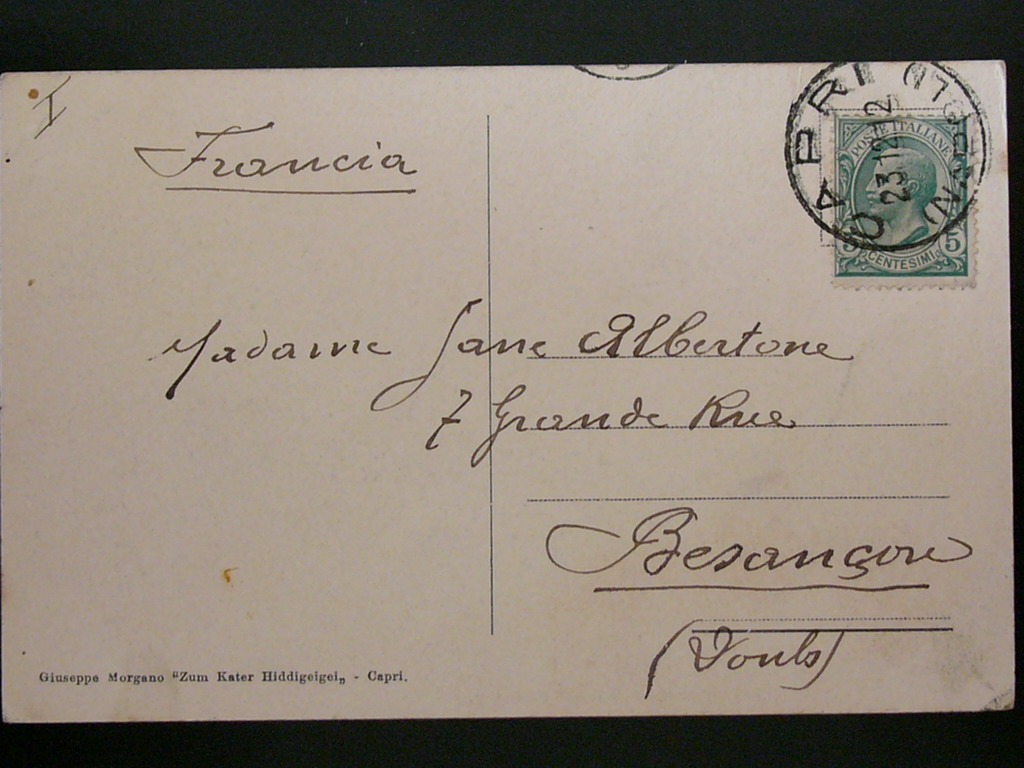 I
Francia
CAPRI (NAPOLI)
23.12.12
POSTE ITALIANE
5 CENTESIMI 5
Madame Jane Albertone
7 Grande Rue
Besançon
(Doubs)
Giuseppe Morgano "Zum Kater Hiddigeigei„ - Capri.